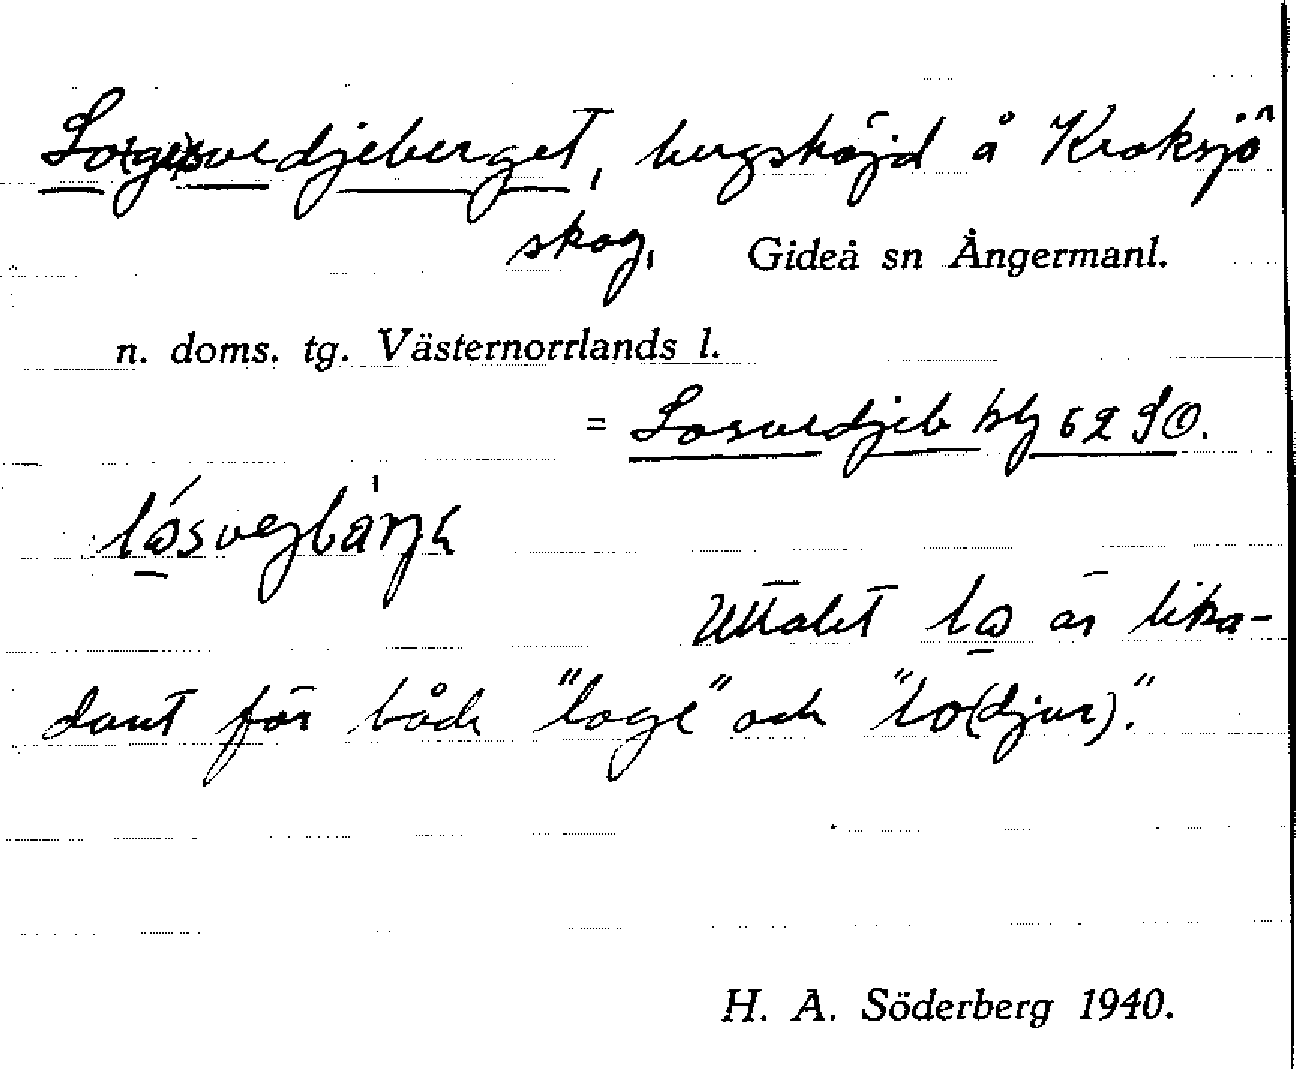 Lo(ge)svedjeberget, bergshöjd å Kroksjö
skog, Gideå sn Ångermanl.
n. doms. tg. Västernorrlands l.
= Losvedjeb blj 62 SO.
Uttalet lɷ är lika-
dant för både "loge" och "lo(djur)."
H. A. Söderberg 1940.